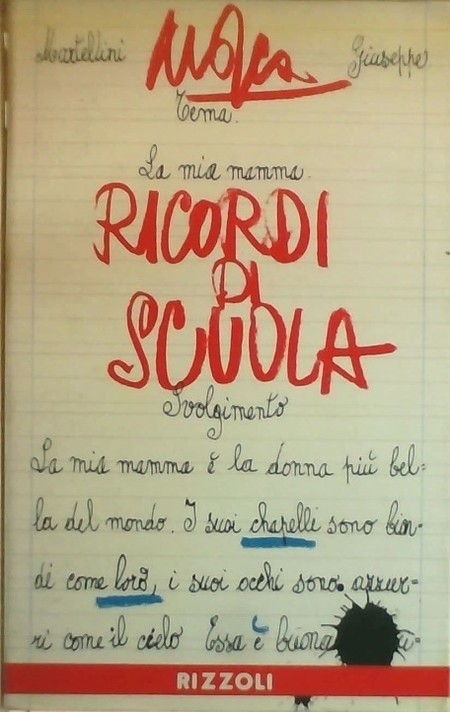 Martellini Mosca Giuseppe
Tema.
La mia mamma.
RICORDI
DI
SCUOLA
Svolgimento
La mia mamma è la donna più bel=
la del mondo. I suoi chapelli sono bion-
di come lorò, i suoi occhi sono azzur=
ri come il cielo Essa è buona
RIZZOLI